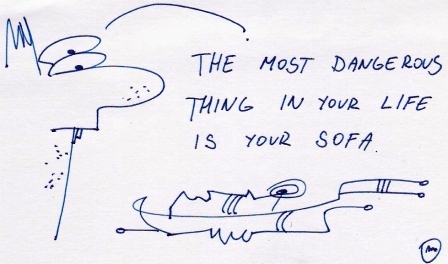 THE MOST DANGEROUS
THING IN YOUR LIFE
IS YOUR SOFA.